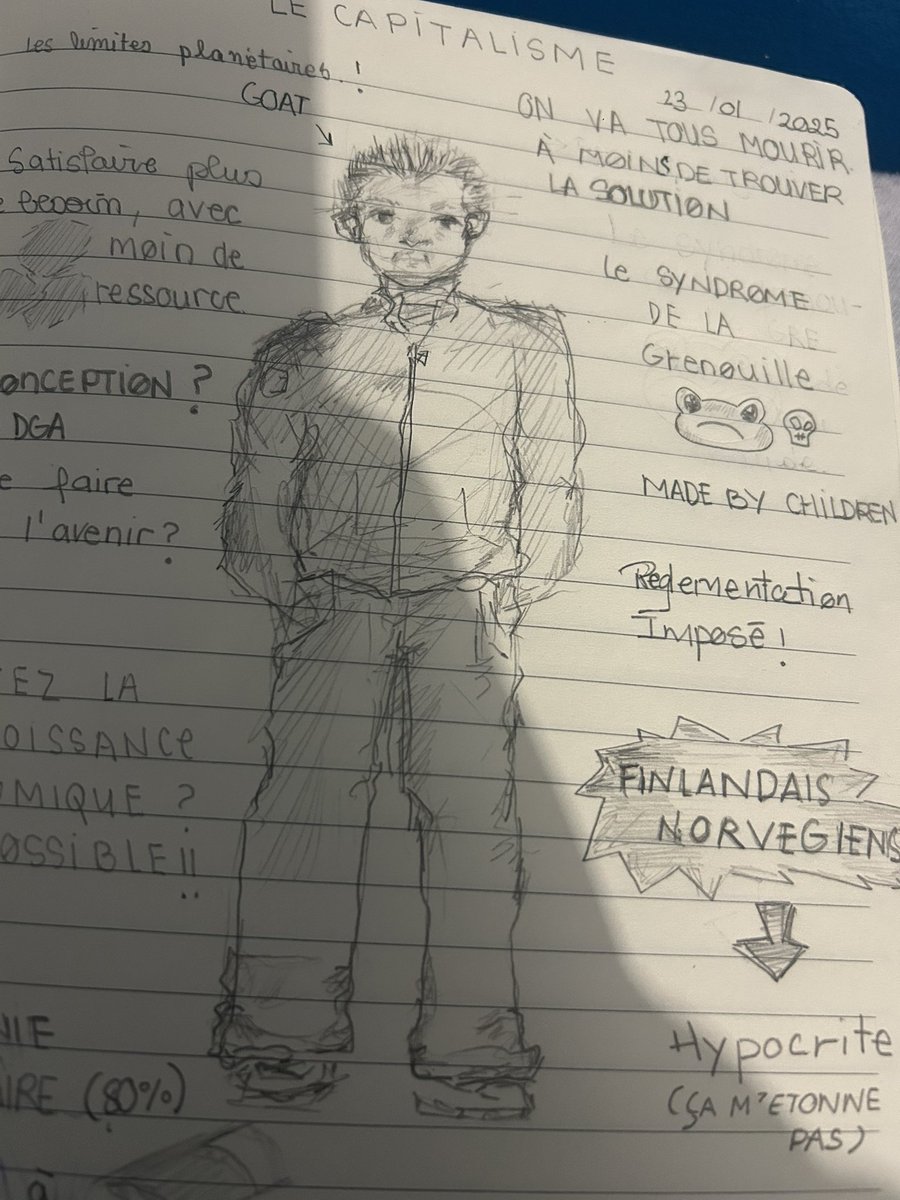 LE CAPITALISME
Les limites planétaires !
GOAT
23 /01 /2025
ON VA TOUS MOURIR
À MOINS DE TROUVER
LA SOLUTION
Satisfaire plus
besoin, avec
moin de
ressource
Le SYNDROME
DE LA
Grenouille
ONCEPTION ?
DGA
e faire
l'avenir ?
MADE BY CHILDREN
Reglementation
Imposé !
EZ LA
OISSANCE
MIQUE ?
OSSIBLE !!
FINLANDAIS
NORVEGIENS
Hypocrite
(ÇA M'ETONNE
PAS)
NIE
AIRE (80%)
à